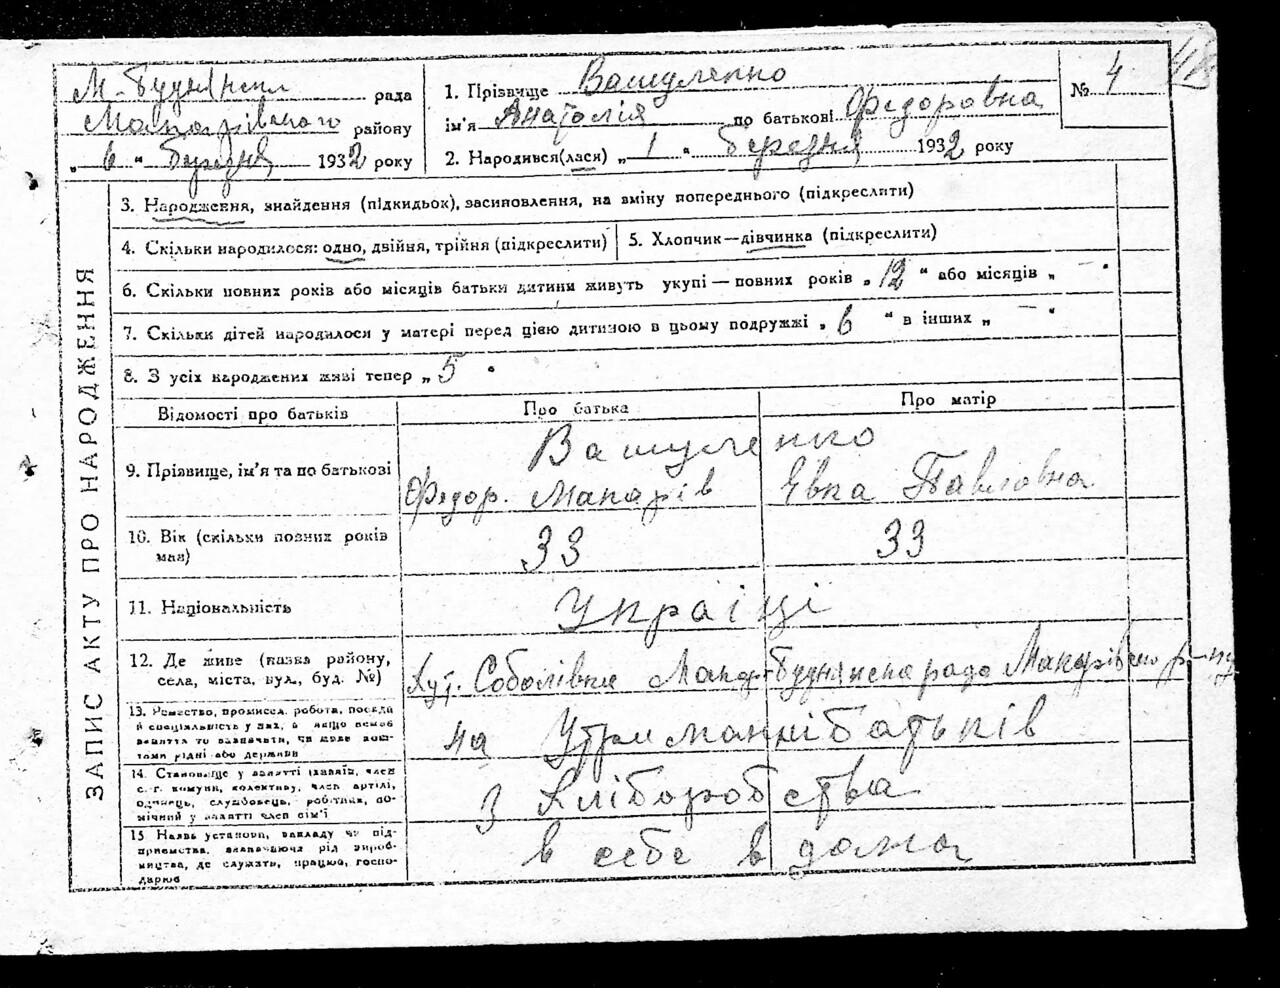 М-Буднянська рада
Макарівського району
„ 6 “ березня 1932 року
1. Прізвище Вашуленко
ім'я Анатолія по батькові Федоровна
2. Народився(лася) „ 1 “ березня 1932 року
№ 4
ЗАПИС АКТУ ПРО НАРОДЖЕННЯ
3. Народження, знайдення (підкидьок), засиновлення, на зміну попереднього (підкреслити)
4. Скільки народилося: одно, двійня, трійня (підкреслити)
5. Хлопчик—дівчинка (підкреслити)
6. Скільки повних років або місяців батьки дитини живуть укупі — повних років „ 12 “ або місяців „ — “
7. Скільки дітей народилося у матері перед цією дитиною в цьому подружжі „ 6 “ в інших „ — “
8. З усіх народжених живі тепер „ 5 “
Відомості про батьків
Про батька
Про матір
9. Прізвище, ім'я та по батькові
Вашуленко
Федор. Макарів
Євка Павловна
10. Вік (скільки повних років має)
33
33
11. Національність
Україці
12. Де живе (назва району, села, міста, вул., буд. №)
Хут. Соболівка Макар-Буднянска рада Макарівского р-ну
13. Ремество, промисел, робота, посада
й спеціяльність у них, а якщо немає
заняття то зазначити, чи живе кош-
тами рідні або держави
на Утриманні батьків
14. Становище у занятті (хазяїн, член
с.-г. комуни, колективу, член артілі,
одинець, службовець, робітник, по-
мічний у занятті член сім'ї
З Хліборобства
15 Назва установи, закладу чи під-
приємства, зазначаючи рід вироб-
ництва, де служать, працює, госпо-
дарює
в себе в дома